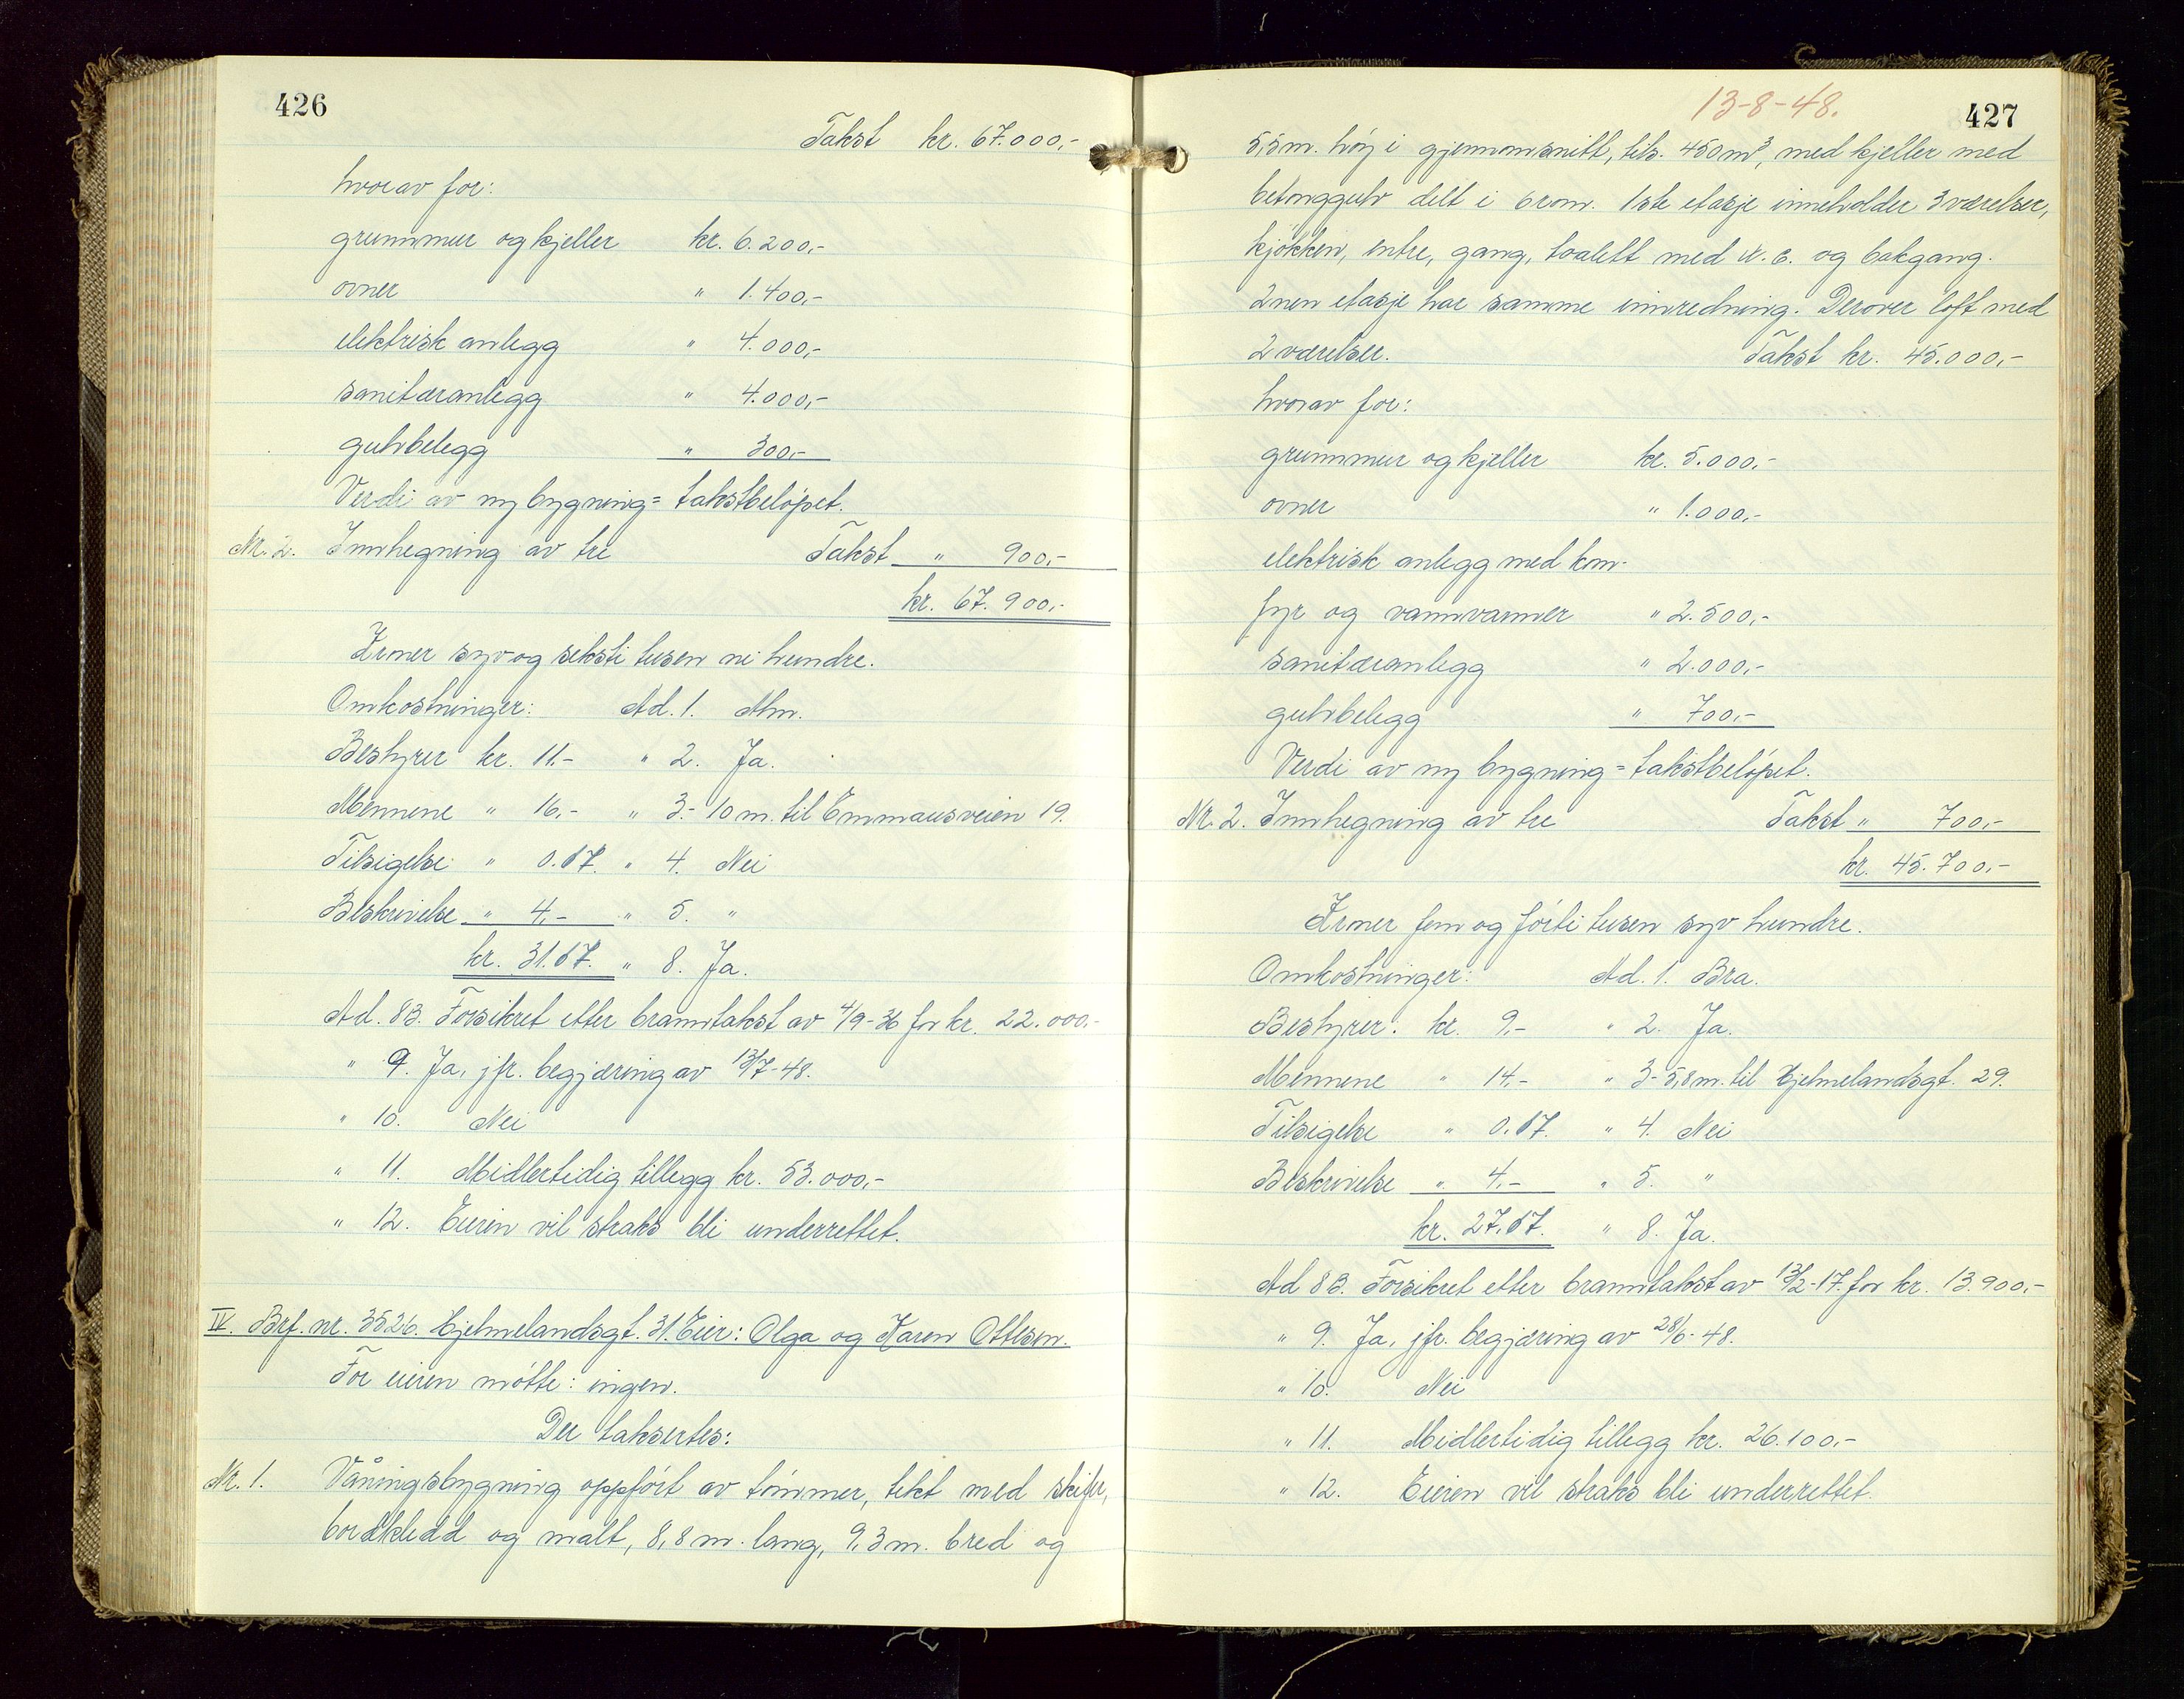 426
Takst kr. 67.000,-
hvorav for:
grunnmur og kjeller kr. 6.200,-
ovner " 1.400,-
elektrisk anlegg " 4.000,-
sanitæranlegg " 4.000,-
gulvbelegg " 300,-
Verdi av ny bygning = takstbeløpet.
Nr. 2. Innhegning av tre Takst " 900,-
kr. 67.900,-
Kroner syv og seksti tusen ni hundre.
Omkostninger: Ad. 1. Alm.
Bestyrer kr. 11.- " 2. Ja.
Mennene " 16.- " 3.- 10 m. til Emmausveien 19.
Tilsigelse " 0.67. " 4. Nei
Beskrivelse " 4.- " 5. "
kr. 31.67. " 8. Ja.
Ad. 8B. Forsikret etter branntakst av 4/9-36 for kr. 22.000.-
" 9. Ja, jfr. begjæring av 13/7-48.
" 10. Nei
" 11. Midlertidig tillegg kr. 53.000,-
" 12. Eieren vil straks bli underrettet.
IV. Brf. nr. 3526. Hjelmelandsgt. 31. Eier: Olga og Karen Ottesen.
For eieren møtte: ingen.
Der taksertes:
Nr. 1. Våningsbygning oppført av tømmer, tekt med skifer,
bordkledd og malt, 8,8 m. lang, 9,3 m. bred og
13-8-48.
427
5,5 m. høy i gjennomsnitt, tils. 450 m³, med kjeller med
betonggulv delt i 6 rom. 1ste etasje inneholder 3 værelser,
kjøkken, entre, gang, toalett med w.c. og bakgang.
2nen etasje har samme innredning. Derover loft med
2 værelser. Takst kr. 45.000,-
hvorav for:
grunnmur og kjeller kr. 5.000,-
ovner " 1.000,-
elektrisk anlegg med kom-
fyr og vannvarmer " 2.500,-
sanitæranlegg " 2.000,-
gulvbelegg " 700,-
Verdi av ny bygning = takstbeløpet.
Nr. 2. Innhegning av tre Takst " 700,-
kr. 45.700,-
Kroner fem og førti tusen syv hundre.
Omkostninger: Ad. 1. Bra.
Bestyrer. kr. 9.- " 2. Ja.
Mennene " 14.- " 3.- 5,8 m. til Hjelmelandsgt. 29.
Tilsigelse " 0.67. " 4. Nei
Beskrivelse " 4.- " 5. "
kr. 27.67. " 8. Ja.
Ad 8B. Forsikret etter branntakst av 13/2-17. for kr. 13.900,-
" 9. Ja, jfr. begjæring av 28/6-48.
" 10. Nei
" 11. Midlertidig tillegg kr. 26.100,-
" 12. Eieren vil straks bli underrettet.